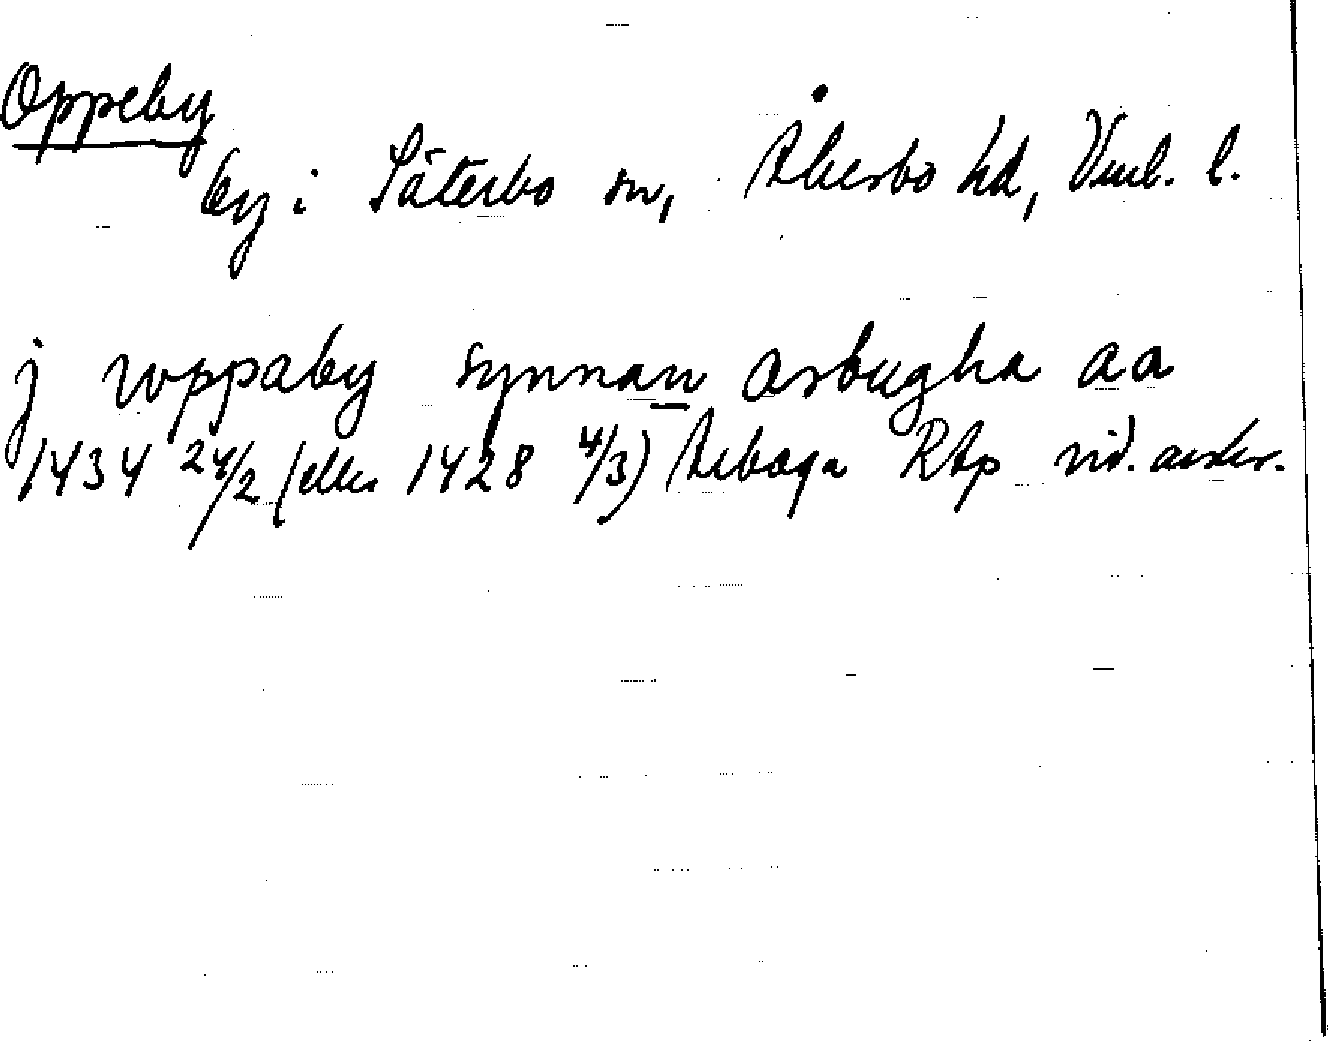 Oppeby
by i Säterbo sn, Åkerbo hd, Vml. l.
j voppaby synnan arbugha aa
1434 24/2 (eller 1428 4/3) Arboga RAp vid. avskr.